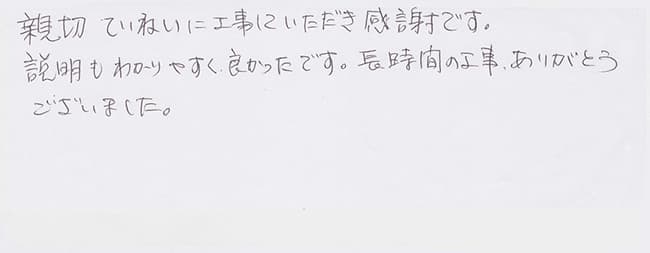 親切 ていねいに工事していただき感謝です。
説明もわかりやすく良かったです。長時間の工事、ありがとう
ございました。